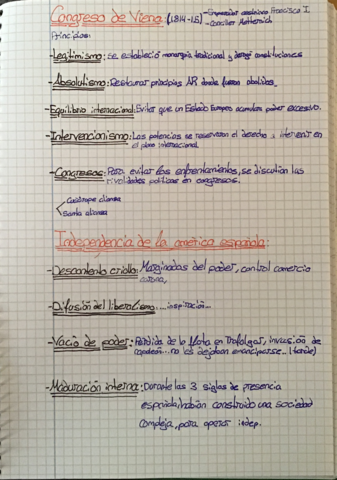 Congreso de Viena (1814-15) - Emperador austriaco Francisco I.
- Canciller Metternich
Principios:
- Legitimismo: Se estableció monarquía tradicional y derogó constituciones
- Absolutismo: Restaurar principios AR donde fueron abolidos.
- Equilibrio internacional: Evitar que un Estado Europeo acumulara poder excesivo.
- Intervencionismo: Las potencias se reservaron el derecho a intervenir en
el plano internacional
- Congresos: Para evitar los enfrentamientos, se discutían las
rivalidades políticas en congresos.
Cuádruple alianza
Santa alianza
Independencia de la américa española:
- Descontento criollo: Marginadas del poder, control comercio
- Difusión del liberalismo:...inspiración...
- Vacío de poder: Pérdida de la flota en Trafalgar, invasión de
napoleón...no les dejaban emanciparse... (tarde)
- Maduración interna: Durante las 3 siglos de presencia
española, habían construido una sociedad
compleja, para operar indep.